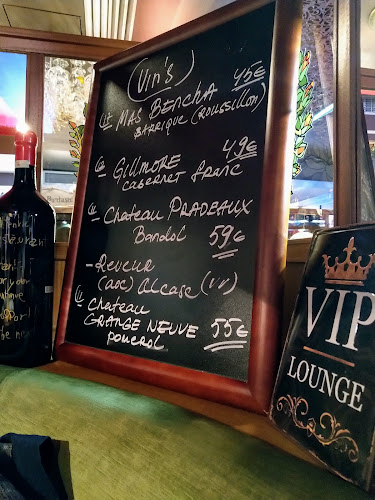 (Vin's)
MAS BENCHA 45€
BARRIQUE (ROUSSILLON)
GILLMORE 49€
CABERNET franc
Chateau PRADEAUX
Bandol 59€
- Reveur
(arc) alcase (vv)
Chateau
GRANGE NEUVE 55€
pomerol
VIP
LOUNGE